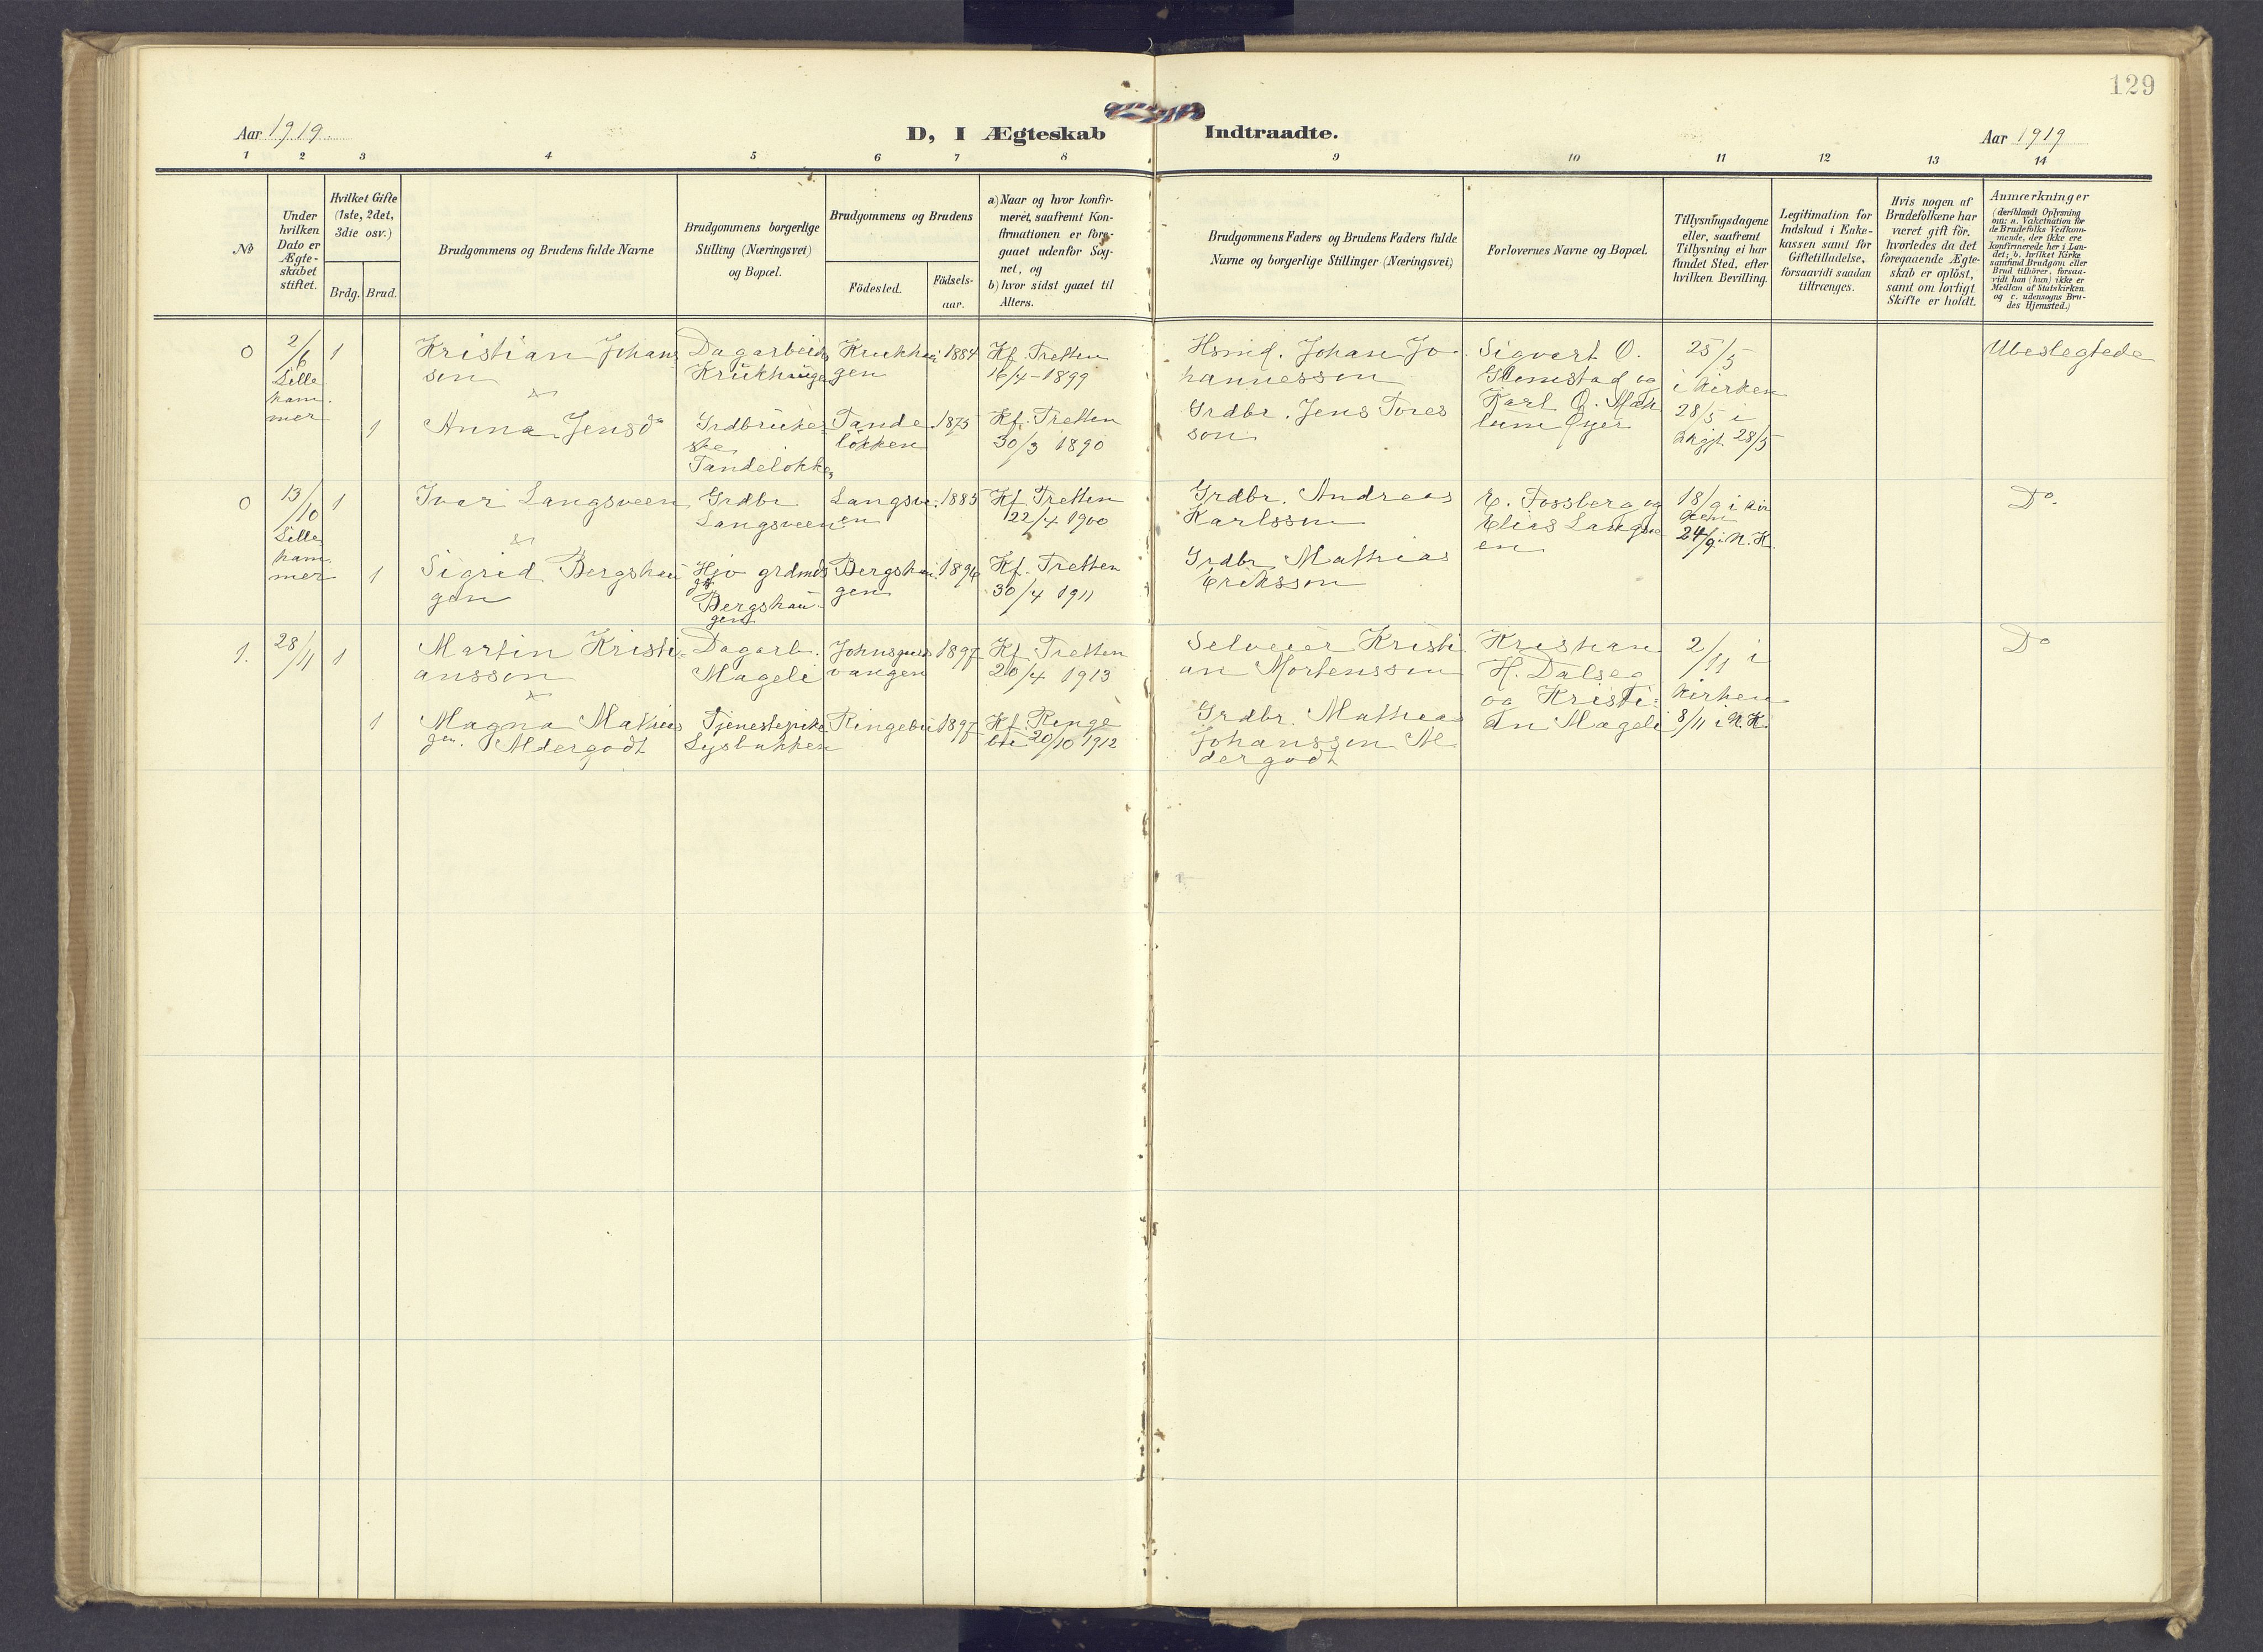 129
Aar 1919
D, I Ægteskab Indtraadte.
Aar 1919
1 2 3 4 5 6 7 8 9 10 11 12 13 14
No
Under
hvilken
Dato er
Ægte-
skabet
stiftet.
Hvilket Gifte
(1ste, 2det,
3die osv.)
Brdg. Brud.
Brudgommens og Brudens fulde Navne
Brudgommens borgerlige
Stilling (Næringsvei)
og Bopæl.
Brudgommens og Brudens
Födested.
Födsels-
aar.
a) Naar og hvor konfir-
meret, saafremt Kon-
firmationen er fore-
gaaet udenfor Sog-
net, og
b) hvor sidst gaaet til
Alters.
Brudgommens Faders og Brudens Faders fulde
Navne og borgerlige Stillinger (Næringsvei)
Forlovernes Navne og Bopæl.
Tillysningsdagene
eller, saafremt
Tillysning ei har
fundet Sted, efter
hvilken Bevilling.
Legitimation for
Indskud i Enke-
kassen samt for
Giftetilladelse,
forsaavidt saadan
tiltrænges.
Hvis nogen af
Brudefolkene har
været gift för,
hvorledes da det
foregaaende Ægte-
skab er oplöst,
samt om lovligt
Skifte er holdt.
Anmærkninger
(deriblandt Oplysning
om: a. Vakcination for
de Brudefolks Vedkom-
mende, der ikke ere
konfirmerede her i Lan-
det; b. hvilket Kirke
samfund Brudgom eller
Brud tilhörer, forsaa-
vidt han (hun) ikke er
Medlem af Statskirken
og c. udensogns Bru-
des Hjemsted.)
0
2/6
Lille
ham
mer
1
Kristian Johans
son
Dagarbeid
Krukhaugen
Krukhau
gen
1884
Kf. Tretten
16/4 - 1899
Hsmd. Johan Jo-
hannesson
Sigvart O.
Glemstad og
Karl O. Mæh
lum Öyer
25/5
i kirken
28/5 i
28/5
Ubeslegtede
1
Anna Jensd
Grdbruker
ske
Tandelökken
Tande
lökken
1875
Kf. Tretten
30/3 1890
Grdbr. Jens Tores
son
0
13/10
Lille
ham
mer
1
Ivar Langsveen
Grdbr
Langsveen
Langsve
en
1885
Kf. Tretten
22/4 1900
Grdbr. Andreas
Karlsson
E. Fossberg og
Elias Langsve
en
18/9 i kir
ken
24/9 i N. K.
Do
1
Sigrid Bergshau
gen
Hjv grdmds
Bergshau-
gen
Bergshau
gen
1896
Kf. Tretten
30/4 1911
Grdbr Mathias
Eriksson
1.
28/11
1
Martin Kristi
ansson
Dagarb.
Mageli
Johnsgaards
vangen
1897
Kf. Tretten
20/4 1913
Selveier Kristi
an Mortensson
Kristian
H. Dalseg
og Kristi=
an Mageli
2/11 i
kirken
8/11 i N. K.
Do
1
Magna Mathias
Aldergodt
Tjenestepike
Lysbakken
Ringebu
1897
Kf. Ringe
bu 20/10 1912
Grdbr. Mathias
Johansson Al
dergodt